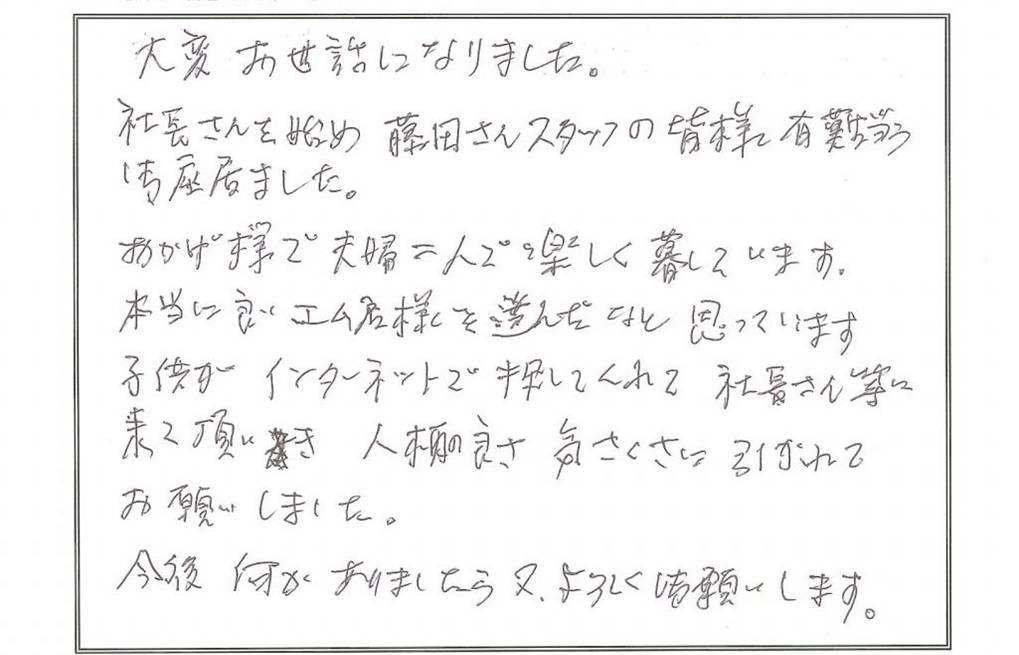 大変 お世話になりました。
社長さんを始め 藤田さんスタッフの皆様に有難当う
御座居ました。
おかげ様で 夫婦二人で楽しく暮しています。
本当に良い工ム店様を選んだなと 思っています
子供が インターネットで探してくれて 社長さん等に
来て頂き 人柄の良さ 気さくさに引かれて
お願いしました。
今後 何かありましたら又、よろしく御願いします。